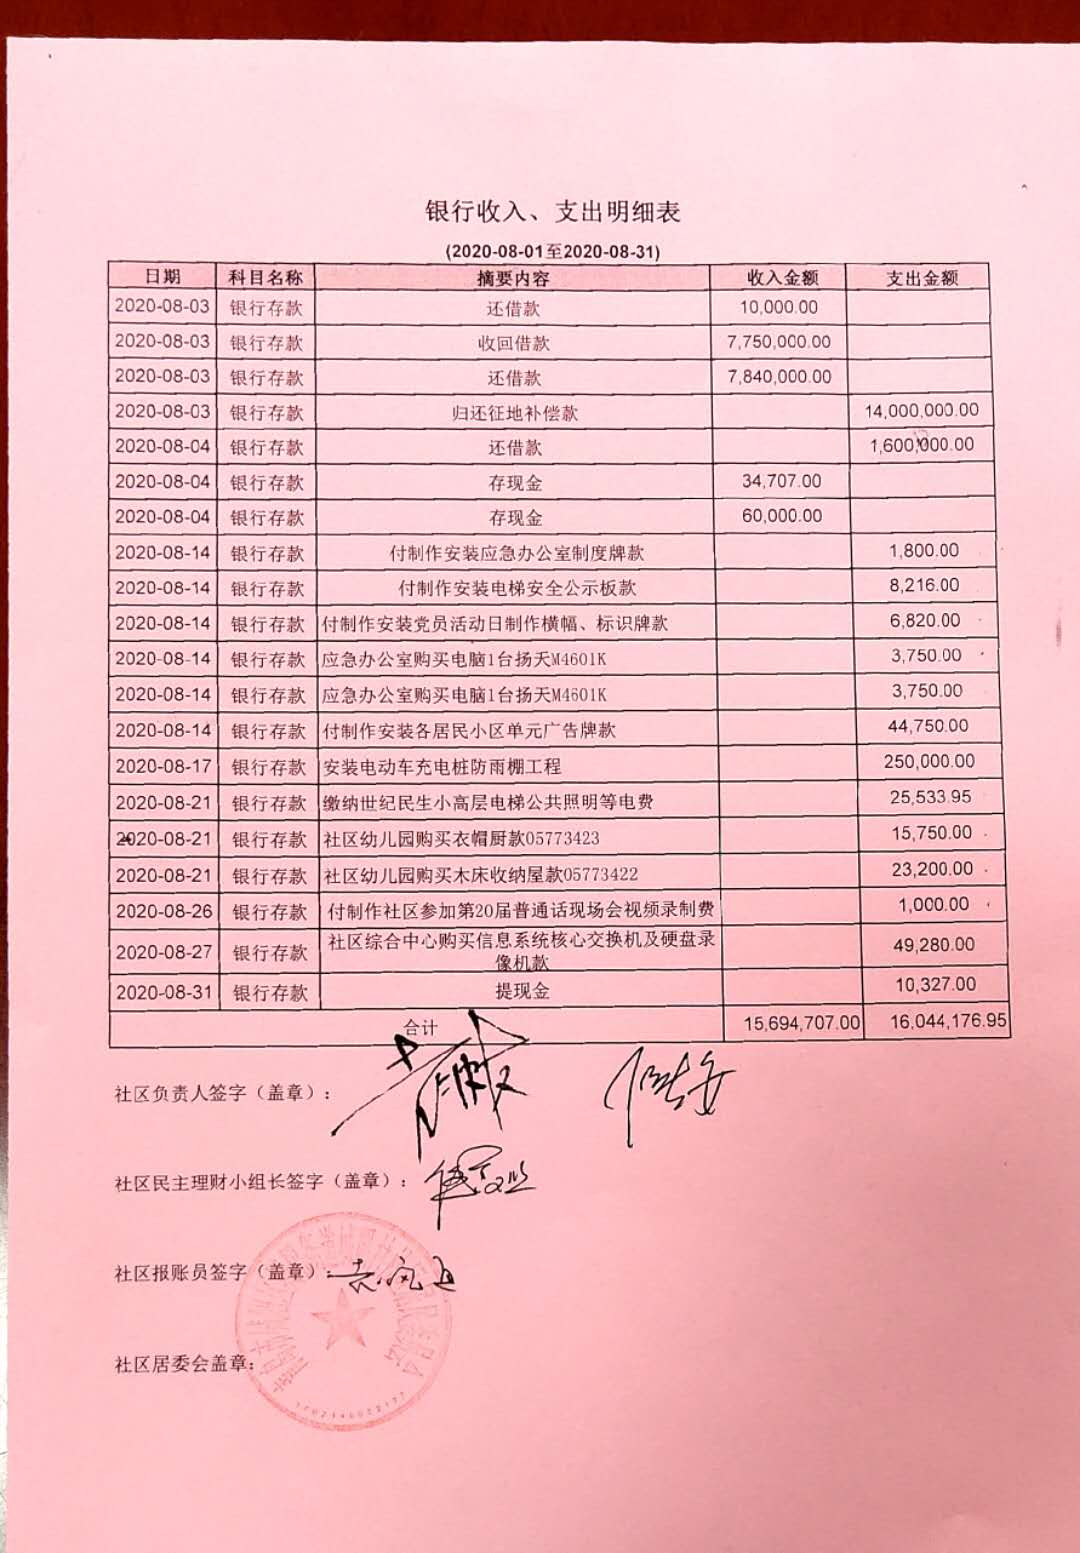 银行收入、支出明细表
(2020-08-01至2020-08-31)
日期 科目名称 摘要内容 收入金额 支出金额
2020-08-03 银行存款 还借款 10,000.00
2020-08-03 银行存款 收回借款 7,750,000.00
2020-08-03 银行存款 还借款 7,840,000.00
2020-08-03 银行存款 归还征地补偿款 14,000,000.00
2020-08-04 银行存款 还借款 1,600,000.00
2020-08-04 银行存款 存现金 34,707.00
2020-08-04 银行存款 存现金 60,000.00
2020-08-14 银行存款 付制作安装应急办公室制度牌款 1,800.00
2020-08-14 银行存款 付制作安装电梯安全公示板款 8,216.00
2020-08-14 银行存款 付制作安装党员活动日制作横幅、标识牌款 6,820.00
2020-08-14 银行存款 应急办公室购买电脑1台扬天M4601K 3,750.00
2020-08-14 银行存款 应急办公室购买电脑1台扬天M4601K 3,750.00
2020-08-14 银行存款 付制作安装各居民小区单元广告牌款 44,750.00
2020-08-17 银行存款 安装电动车充电桩防雨棚工程 250,000.00
2020-08-21 银行存款 缴纳世纪民生小高层电梯公共照明等电费 25,533.95
2020-08-21 银行存款 社区幼儿园购买衣帽厨款05773423 15,750.00
2020-08-21 银行存款 社区幼儿园购买木床收纳屋款05773422 23,200.00
2020-08-26 银行存款 付制作社区参加第20届普通话现场会视频录制费 1,000.00
2020-08-27 银行存款 社区综合中心购买信息系统核心交换机及硬盘录 49,280.00
像机款
2020-08-31 银行存款 提现金 10,327.00
合计 15,694,707.00 16,044,176.95
社区负责人签字（盖章）：
社区民主理财小组长签字（盖章）：
社区报账员签字（盖章）：
社区居委会盖章：